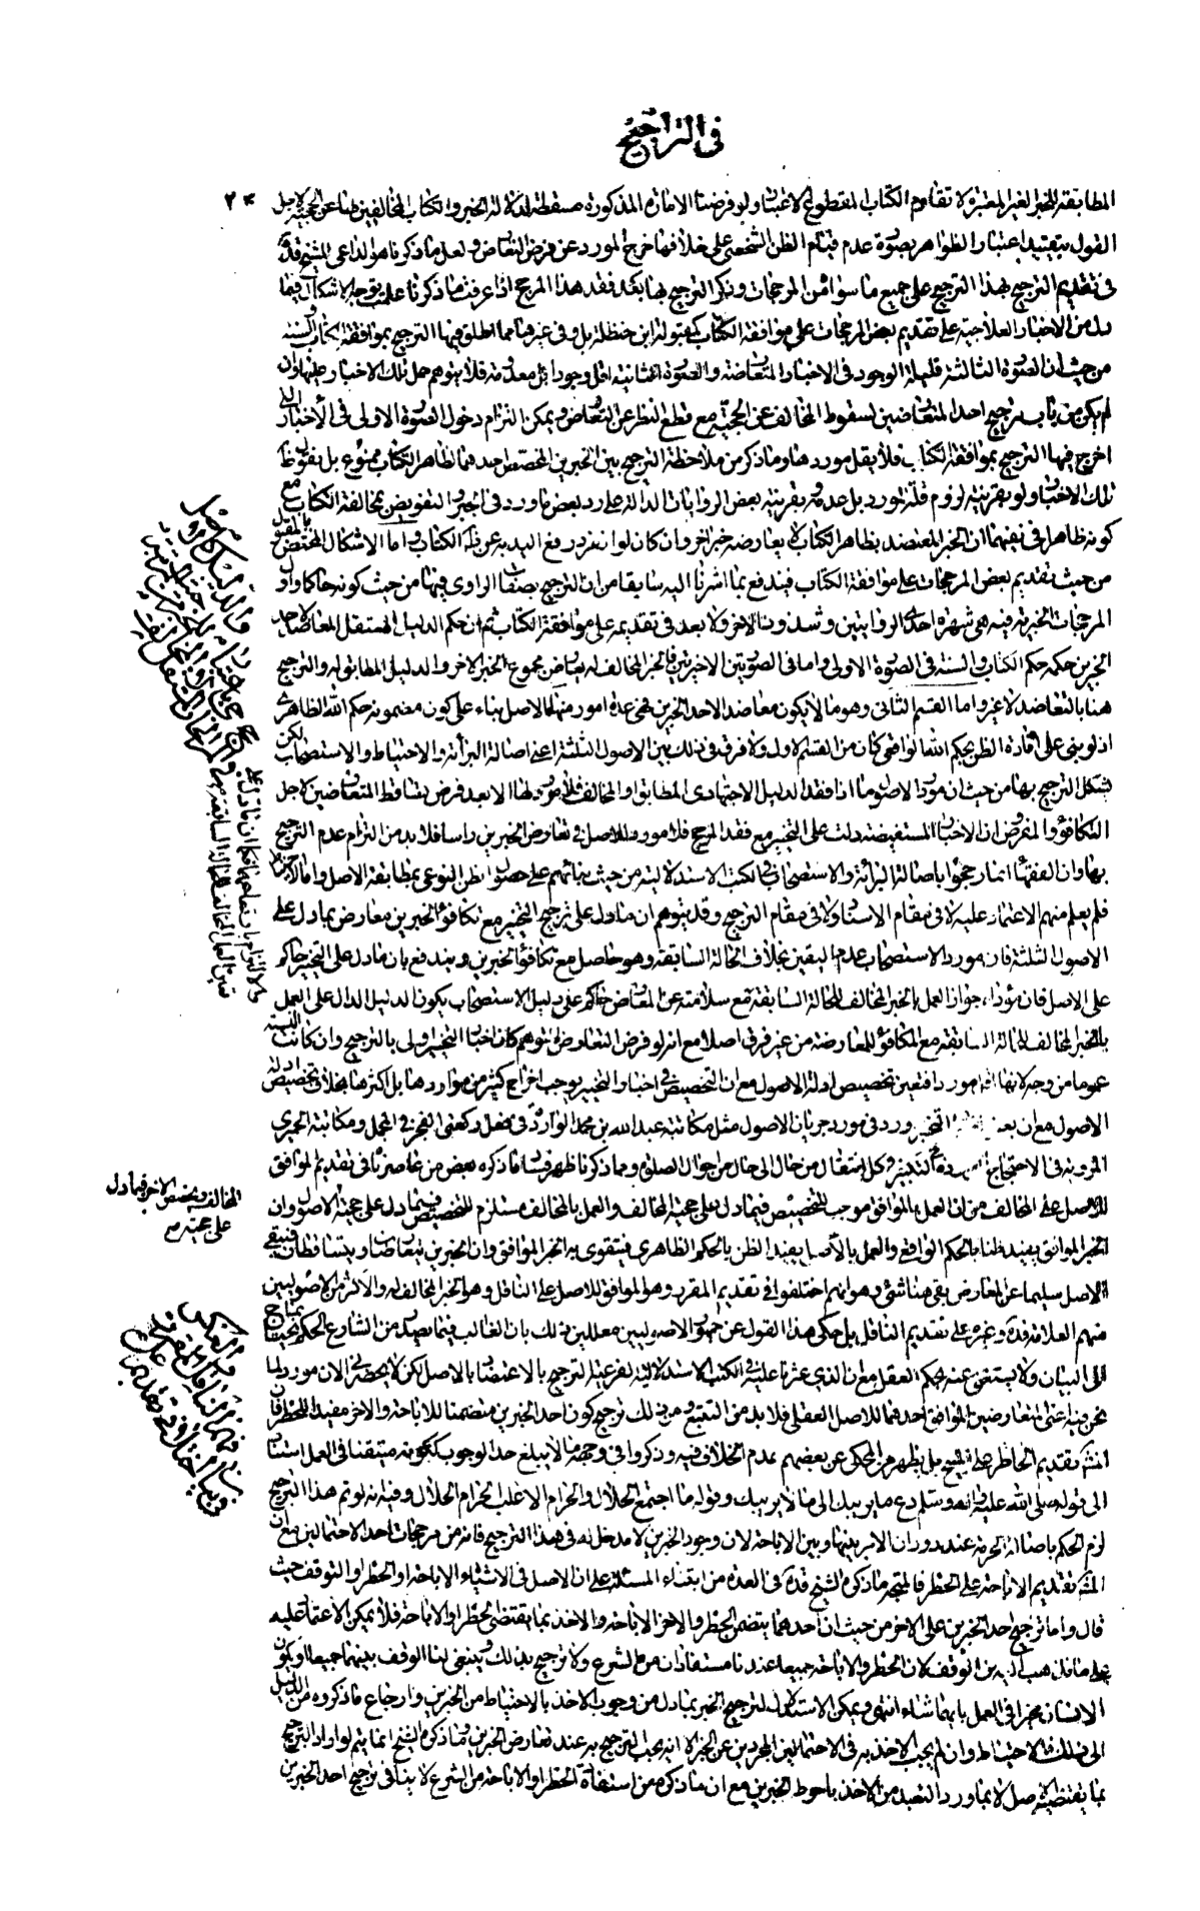 في التراجيح
المطابقة للخبر الغير المعتبرة لا تقاوم الكتاب المقطوع الاعتبار ولو فرضنا الامارة المذكورة مسقطة لدلالة الخبر والكتاب المخالفين لها عن الحجية لاجل
القول بتقييد اعتبار الظواهر بصورة عدم قيام الظن الشخصي على خلافها خرج المورد عن فرض التعارض ولعل ما ذكرنا هو الداعي للشيخ قده
في تقديم الترجيح بهذا المرجح على جميع ما سواه من المرجحات وذكر الترجيح بها بعد فقد هذا المرجح اذا عرفت ما ذكرنا علمت توجه الاشكال فيما
دل من الاخبار العلاجية على تقديم بعض المرجحات على موافقة الكتاب كمقبولة ابن حنظلة بل وفي غيرها مما اطلق فيها الترجيح بموافقة الكتاب والسنة
من حيث ان الصورة الثالثة قليلة الوجود في الاخبار المتعارضة والصورة الثانية اقل وجودا بل معدومة فلا يتوهم حمل تلك الاخبار عليها وان
لم يكن من باب ترجيح احد المتعارضين لسقوط المخالف عن الحجية مع قطع النظر عن التعارض ويمكن التزام دخول الصورة الاولى في الأخبار التي
اخرج فيها الترجيح بموافقة الكتاب فلا يقل موردها وما ذكر من ملاحظة الترجيح بين الخبرين المخصص احدهما لظاهر الكتاب ممنوع بل نقول ان
تلك الاخبار ولو بقرينة لزوم قلة المورد بل عدمه وبقرينة بعض الروايات الدالة على رد بعض ما ورد في الجبر والتفويض بمخالفة الكتاب مع
كونه ظاهرا في نفيهما ان الخبر المعتضد بظاهر الكتاب لا يعارضه خبر اخر وان كان لو انفرد رفع اليد به عن ظاهر الكتاب واما الاشكال المختص بالمقبولة
من حيث تقديم بعض المرجحات على موافقة الكتاب فيندفع بما اشرنا اليه سابقا من ان الترجيح بصفات الراوي فيها من حيث كونه حاكما واول
المرجحات الخبرية فيه هي شهرة احدى الروايتين وشذوذ الاخر ولا بعد في تقديمه على موافقة الكتاب ثم ان حكم الدليل المستقل المعاضد لاحد
الخبرين حكمه حكم الكتاب والسنة في الصورة الاولى واما في الصورتين الاخيرتين فالخبر المخالف له يعارض مجموع الخبر الاخر والدليل المطابق له والترجيح
هنا بالتعاضد لا غير واما القسم الثاني وهو ما لا يكون معاضدا لاحد الخبرين فهي عدة امور منها الاصل بناء على كون مضمونه حكم الله الظاهري
اذ لو بني على افادة الظن بحكم الله الواقعي كان من القسم الاول ولا فرق في ذلك بين الاصول الثلثة اعني اصالة البرائة والاحتياط والاستصحاب لكن
يشكل الترجيح بها من حيث ان مورد الاصول ما اذا فقد الدليل الاجتهادي المطابق والمخالف فلا مورد لها الا بعد فرض تساقط المتعارضين لاجل
التكافؤ والمفروض ان الاخبار المستفيضة دلت على التخيير مع فقد المرجح فلا مورد للاصل في تعارض الخبرين راسا فلابد من التزام عدم الترجيح
بها وان الفقهاء انما رجحوا باصالة البرائة والاستصحاب في الكتب الاستدلالية من حيث بنائهم على حصول الظن النوعي بمطابقة الاصل واما الاحتياط
فلم يعلم منهم الاعتماد عليه لا في مقام الاستناد ولا في مقام الترجيح وقد يتوهم ان ما دل على ترجيح التخيير مع تكافؤ الخبرين معارض بما دل على
الاصول الثلثة فان مورد الاستصحاب عدم اليقين بخلاف الحالة السابقة وهو حاصل مع تكافؤ الخبرين ويندفع بان ما دل على التخيير حاكم
على الاصل فان مؤداه جواز العمل بالخبر المخالف للحالة السابقة مع سلامته عن المعارض حاكم على دليل الاستصحاب يكون الدليل الدال على العمل
بالخبر المخالف للحالة السابقة مع المكافؤ للمعارضه من غير فرق اصلا مع انه لو فرض التعارض المتوهم كان اخبار التخيير اولى بالترجيح وان كانت النسبة
عموما من وجه لانها اقل موردا فتعين تخصيص ادلة الاصول مع ان التخصيص في اخبار التخيير يوجب اخراج كثير من مواردها بل اكثرها بخلاف تخصيص ادلة
الاصول مع ان بعض اخبار التخيير ورد في مورد جريان الاصول مثل مكاتبة عبد الله بن محمد الواردة في فعل ركعتي الفجر في المحمل ومكاتبة الحميري
المروية في الاحتجاج الواردة في التكبير في كل انتقال من حال الى حال من احوال الصلوة ومما ذكرنا ظهر فساد ما ذكره بعض من عاصرناه في تقديم الموافق
للاصل على المخالف من ان العمل بالموافق موجب للتخصيص فيما دل على حجية المخالف والعمل بالمخالف مستلزم للتخصيص فيما دل على حجية الاصول وان
الخبر الموافق يفيد ظنا بالحكم الواقعي والعمل بالاصل يفيد الظن بالحكم الظاهري فيتقوى به الخبر الموافق وان الخبرين يتعارضان ويتساقطان فيبقى
الاصل سليما عن المعارض بقي هنا شئ وهو انهم اختلفوا في تقديم المقرر وهو الموافق للاصل على الناقل وهو الخبر المخالف له والاكثر من الاصوليين
منهم العلامة قده وغيره على تقديم الناقل بل حكى هذا القول عن جمهور الاصوليين معللين ذلك بان الغالب فيما يصدر من الشارع الحكم بما يحتاج
الى البيان ولا يستغنى عنه بحكم العقل مع ان الذي عثرنا عليه في الكتب الاستدلالية الفرعية الترجيح بالاعتضاد بالاصل لكن لا يحضرني الان مورد لما
نحن فيه اعني المتعارضين الموافق احدهما للاصل العقلي فلا بد من التتبع ومن ذلك ترجيح كون احد الخبرين متضمنا للاباحة والاخر مفيدا للحظر فان
المشهور تقديم الحاظر على المبيح بل يظهر من المحكي عن بعضهم عدم الخلاف فيه وذكروا في وجهه ما لا يبلغ حد الوجوب ككونه متيقنا في العمل استنادا
الى قوله صلى الله عليه وآله وسلم دع ما يريبك الى ما لا يريبك وقوله ما اجتمع الحلال والحرام الا غلب الحرام الحلال وفيه انه لو تم هذا الترجيح
لزم الحكم باصالة الحرمة عند دوران الامر بينها وبين الاباحة لان وجود الخبرين لا مدخل له في هذا الترجيح فانه من مرجحات احد الاحتمالين مع ان
المشهور تقديم الاباحة على الحظر فالمتجه ما ذكره الشيخ قده في العدة من ابتناء المسئلة على ان الاصل في الاشياء الاباحة او الحظر او التوقف حيث
قال واما ترجيح احد الخبرين على الاخر من حيث ان احدهما يتضمن الحظر والاخر الاباحة والاخذ بما يقتضي الحظر او الاباحة فلا يمكن الاعتماد عليه
على ما نذهب اليه من الوقف لان الحظر والاباحة جميعا عندنا مستفادان من الشرع ولا ترجيح بذلك وينبغي لنا الوقف بينهما جميعا او يكون
الانسان مخيرا في العمل بايهما شاء انتهى ويمكن الاستدلال لترجيح الخبر بما دل من وجوب الاخذ بالاحتياط من الخبرين وارجاع ما ذكروه من الدليل
الى ذلك فالاحتياط وان لم يجب الاخذ به في الاحتمالين المجردين عن الخبر الا انه يجب الترجيح به عند تعارض الخبرين وما ذكره الشيخ انما يتم لو اراد الترجيح
بما يقتضيه الاصل لا بما ورد التعبد من الاخذ باحوط الخبرين مع ان ما ذكره من استفادة الحظر او الاباحة من الشرع لا ينافي ترجيح احد الخبرين
المخالف وتخصيص الاخر فيما دل
على حجيته م